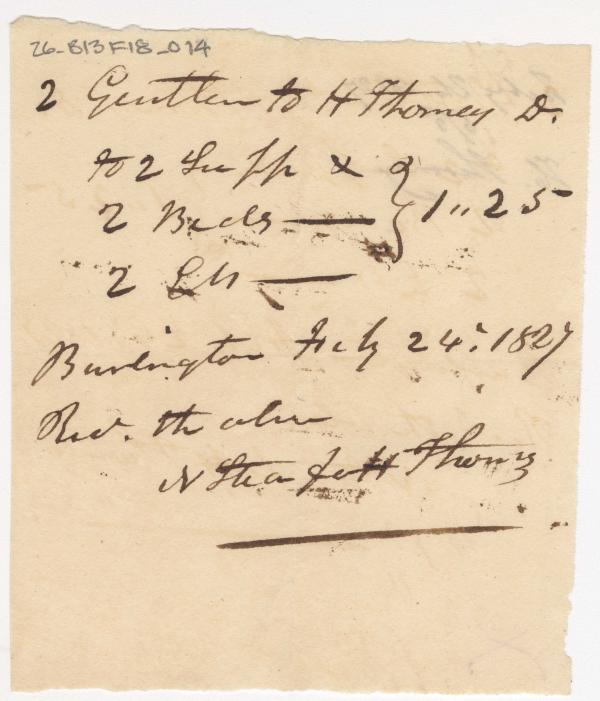 26-B13F18-014
2 Gentlen to H Thomas Dr.
to 2 Supp x
2 Beds — } 1,,25
2
Burlington July 24th. 1827
Recd. the above
N for H Thomas